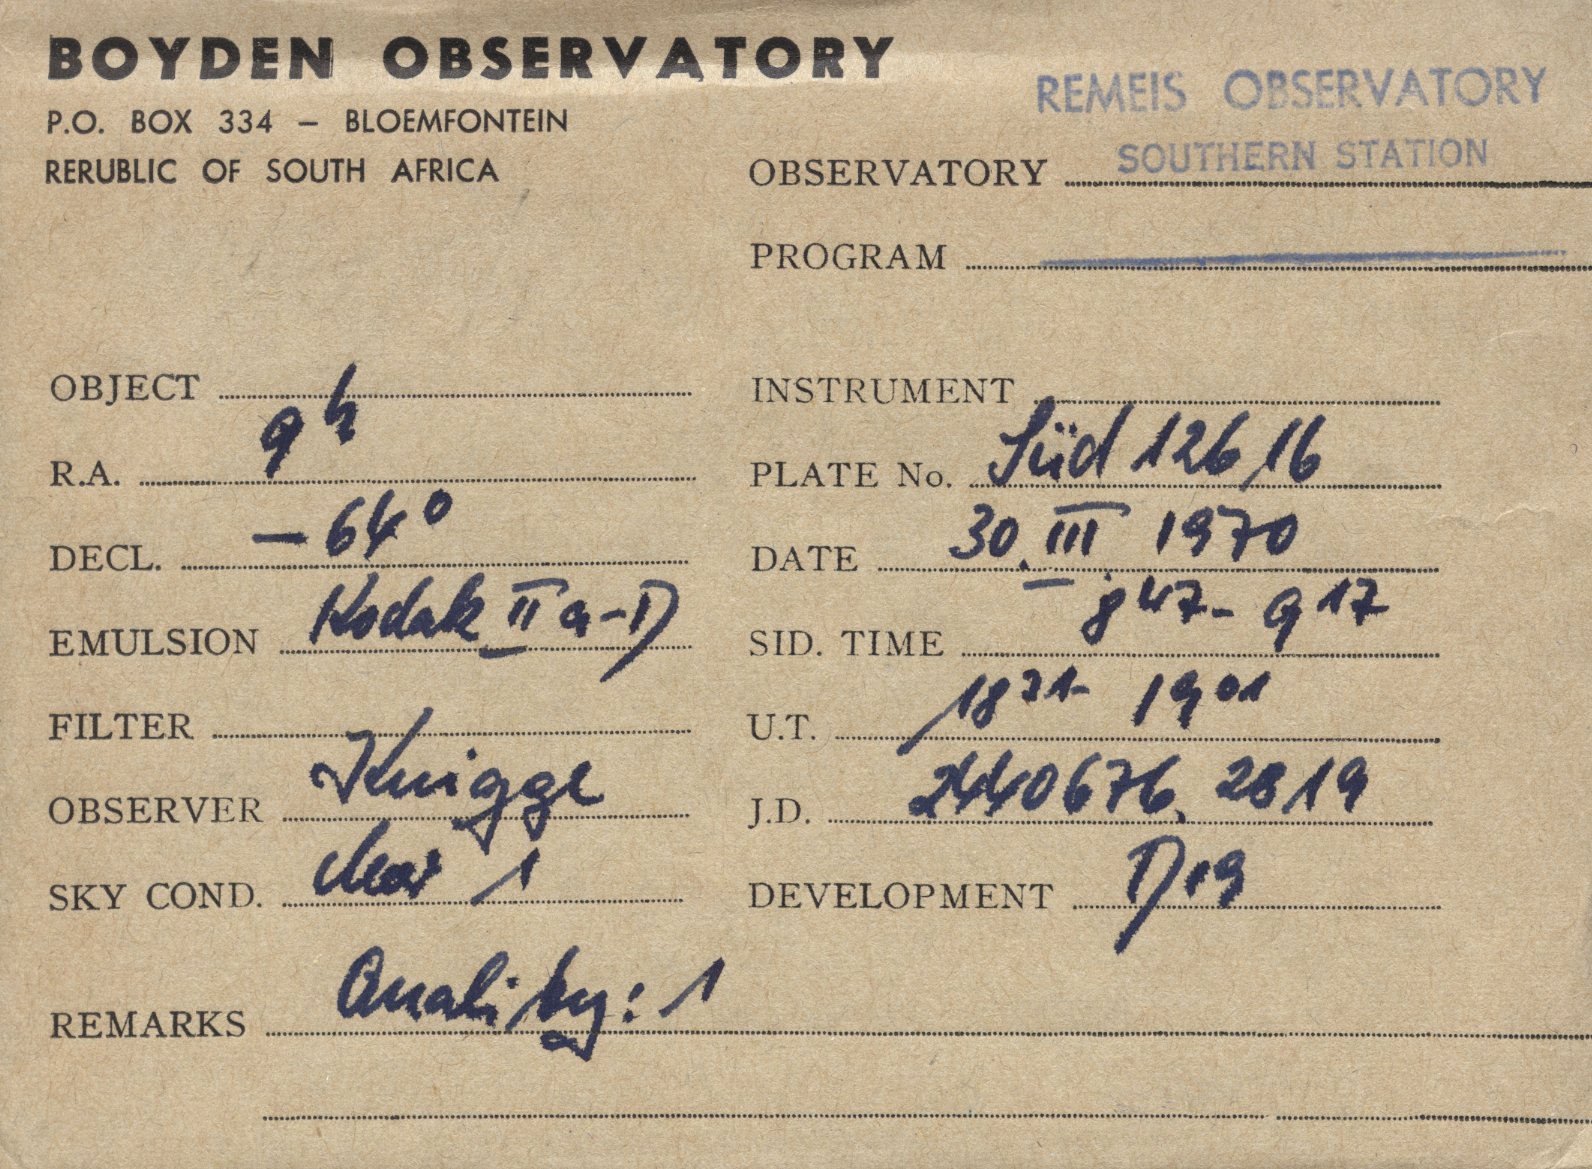 BOYDEN OBSERVATORY
P.O. BOX 334 – BLOEMFONTEIN
RERUBLIC OF SOUTH AFRICA
REMEIS OBSERVATORY
OBSERVATORY SOUTHERN STATION
PROGRAM
OBJECT
R.A. 9h
DECL. -64°
EMULSION Kodak IIa-D
FILTER
OBSERVER Knigge
SKY COND. clear 1
INSTRUMENT
PLATE No. Süd 12616
DATE 30. III 1970
SID. TIME 8 47 - 9 17
U.T. 18 31 - 19 01
J.D. 2440676.2819
DEVELOPMENT D19
REMARKS Quality: 1